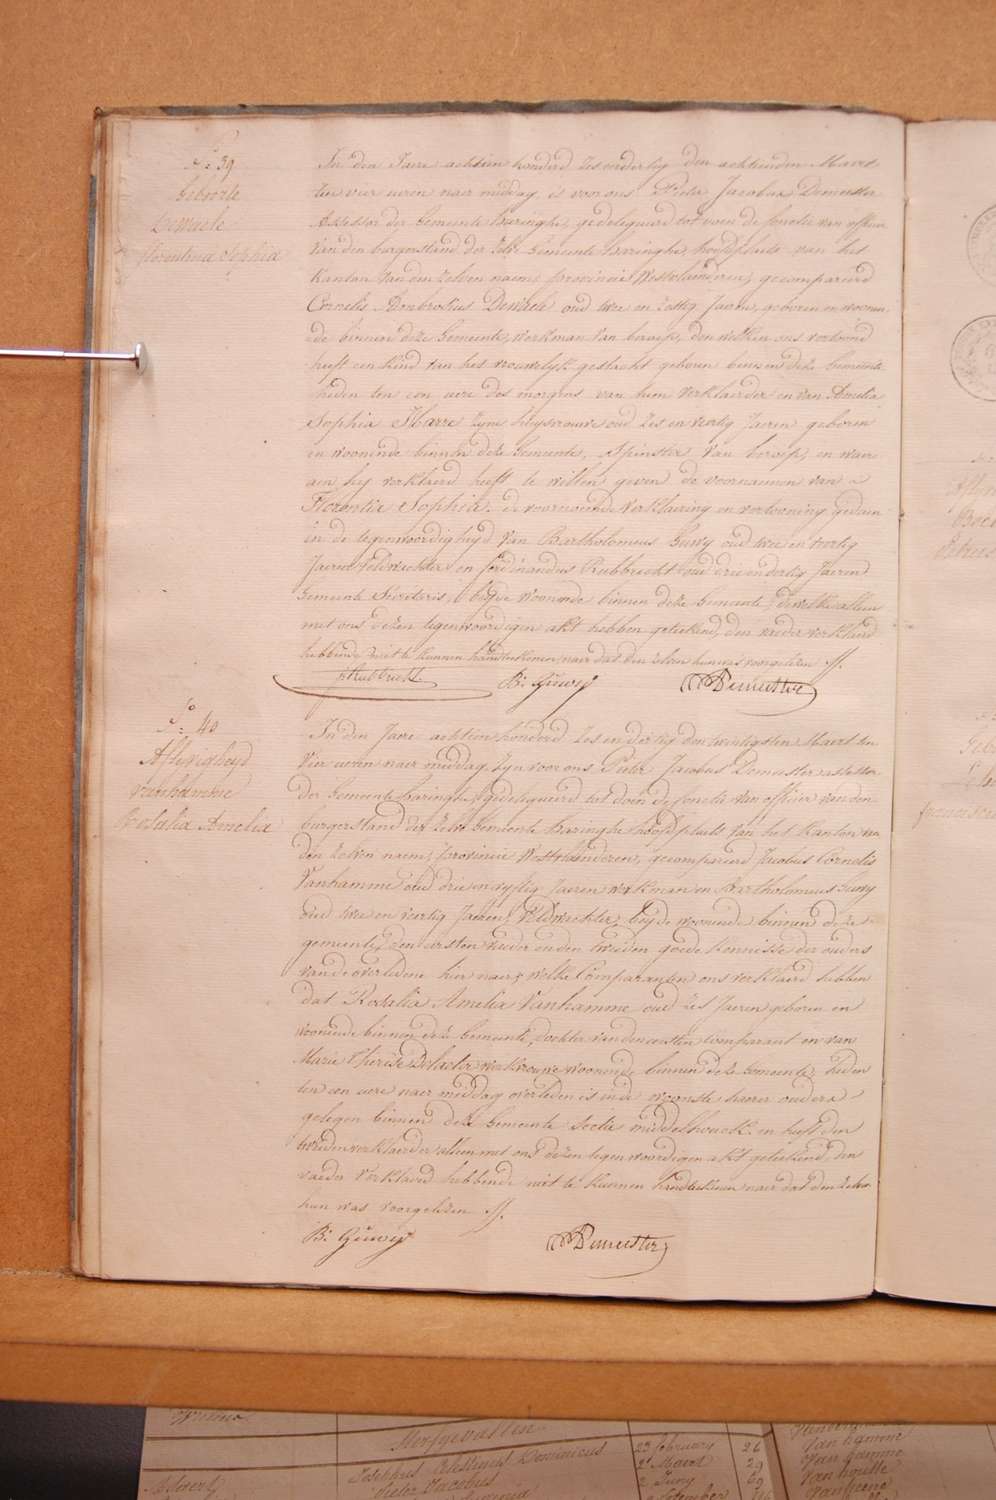 N.º 39
Geboorte
Dewaele
florentina Sophia
In den Jaere achtien honderd zes en dertig den achtienden Maert
ten vier uren naer middag, is voor ons Pieter Jacobus Demeester
Assessor der Gemeente Haringhe, gedelegueerd tot doen de functie van officier
van den burgerstand der zelve Gemeente Haringhe, hoofdplaets van het
Kanton van den zelven naem, provincie Westvlaenderen, gecompareerd
Cornelis Ambrosius Dewaele oud twee en zestig Jaeren, geboren en woonen-
de binnen deze Gemeente, werkman van beroep, den welken ons vertoond
heeft een kind van het vrouwelyk geslacht geboren binnen deze Gemeente
heden ten een ure des morgens van hem verklaerder en van Amelia
Sophia Marre zyne huysvrouwe oud zes en veertig Jaeren geboren
en woonende binnen deze Gemeente, Spinster van beroep, en waer-
aen hy verklaerd heeft te willen geven de voornaemen van
Florentia Sophia. de voornoemde verklaering en vertooning gedaen
in de tegenwoordigheyd van Bartholomeus Guwy oud twee en veertig
Jaeren veldwachter en ferdinandus Rubbrecht oud drie en dertig Jaeren
Gemeente Secretaris, beyde woonende binnen deze Gemeente, dewelke alleen
met ons dezen tegenwoordigen akt hebben geteekend, den vader verklaerd
hebbende niet te kunnen handteekenen naer dat den zelven hun was voorgelezen //.
f Rubbrecht B: Guwy Demeester
N.º 40
Aflyvigheyd
Vanhamme
Rosalia Amelia
In den Jaere achtien honderd zes en dertig den twintigsten Maert ten
Vier uren naer middag, zyn voor ons Pieter Jacobus Demeester assessor
der Gemeente haringhe, gedelegueerd tot doen de functie van officier van den
burgerstand der zelve Gemeente Haringhe hoofdplaets van het Kanton van
den zelven naem, provincie Westvlaenderen, gecompareerd Jacobus Cornelis
Vanhamme oud drie en vyftig Jaeren werkman en Bartholomeus Guwy
oud twee en veertig Jaeren, Veldwachter, beyde woonende binnen deze
gemeente, den eersten vader en den tweeden goede kennisse der ouders
van de overledene hier naer, welke Comparanten ons verklaerd hebben
dat Rosalia Amelia Vanhamme oud zes Jaeren geboren en
woonende binnen deze Gemeente, dochter van den eersten Comparant en van
Marie therese werkvrouwe woonende binnen deze Gemeente, heden
ten een ure naer middag overleden is in de woonste haerer ouders
gelegen binnen deze Gemeente Sectie middelhouck en heeft den
tweeden verklaerder alleen met ons dezen tegenwoordigen akt geteekend, den
vader verklaerd hebbende niet te kunnen handteekenen naer dat den zelven
hun was voorgelezen //.
B: Guwy Demeester
Sterfgevallen
Josephus Celestinus Dominicus 23 february 26
Pieter Jacobus 2 Maert 29
2 Juny 69
Van hamme
Van hamme
Van houtte